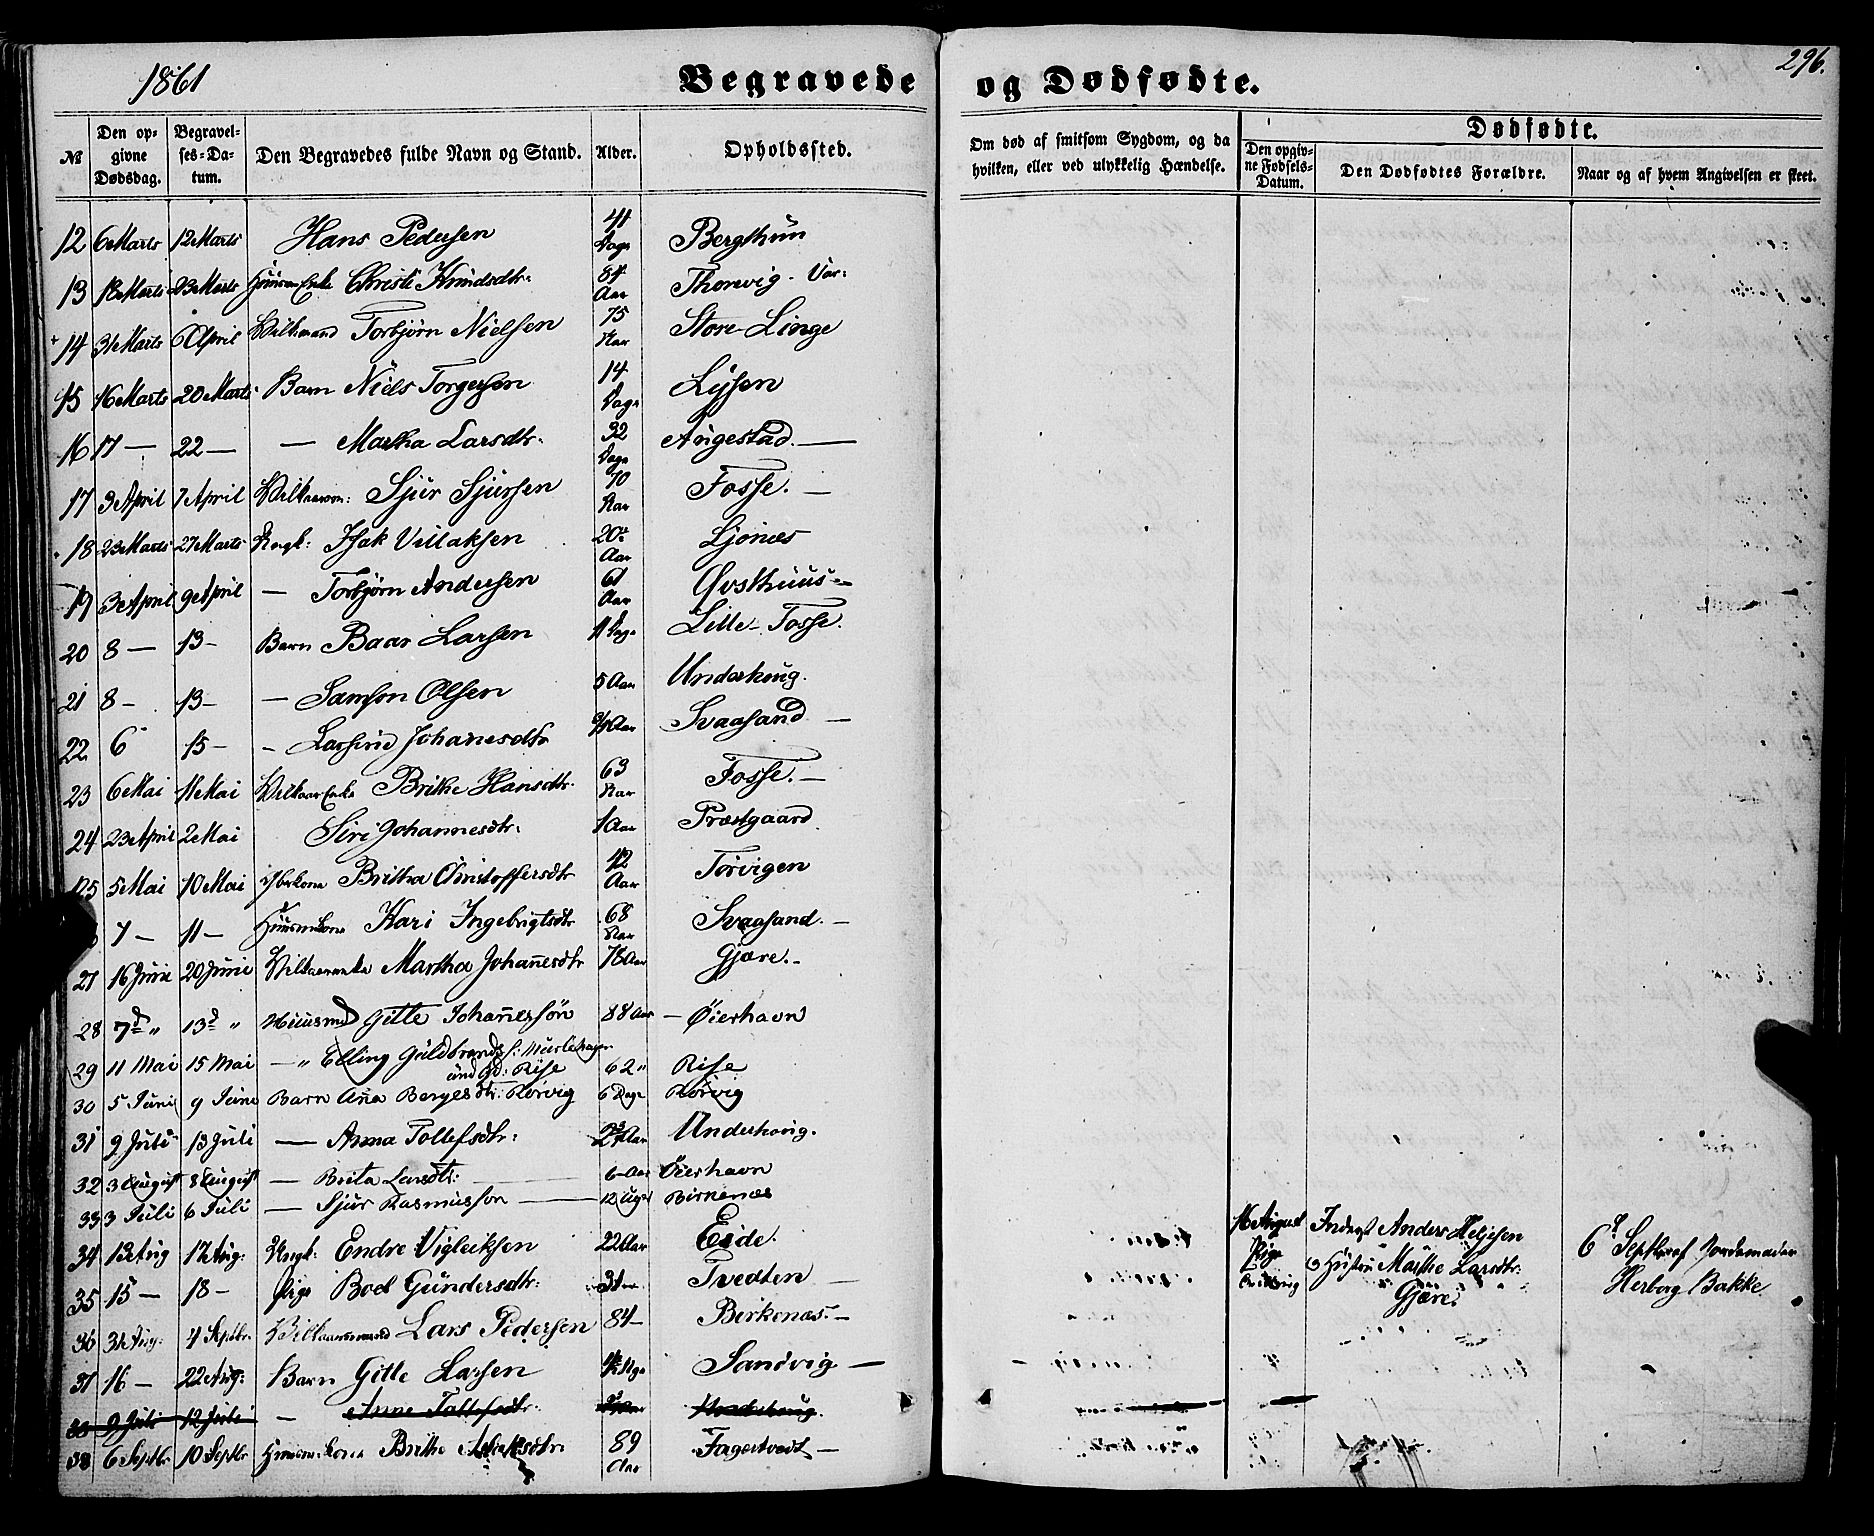 1861
Begravede og Dødfødte.
296.
№ Den opgivne Dødsdag. Begravelses-Datum. Den Begravedes fulde Navn og Stand. Alder. Opholdssted. Om død af smitsom Sygdom, og da hvilken, eller ved ulykkelig Hændelse. Dødfødte. Den opgivne Fødsels-Datum. Den Dødfødtes Forældre. Naar og af hvem Angivelsen er skeet.
12 6 Marts 12 Marts Hans Pedersen 41 Dage Bergthun
13 18 Marts 23 Marts Christi Knudsdtr: 84 Aar Thorevig - Var:
14 31 Marts 6 April Torbjørn Nielsen 75 Aar Store-Linge
15 16 Marts 20 Marts Barn Niels Torgersen 14 Dage Lysen
16 17 — 22 — — Martha Larsdtr. 32 Dage Angestad. —
17 3 April 7 April Sjur Sjursen 70 Aar Fosse. —
18 23 Marts 27 Marts Ungk: Isak Villaksen 20 Aar Ljonæs
19 3 April 9 April — Torbjørn Andersen 61 Aar Østhuus
20 8 — 13 - Barn Baar Larsen Lille-Fosse.
21 8 - 13 - — Samson Olsen 5 Aar Underhoug.
22 6 15 - - Larsine Johanesdtr Aar Svaasand —
23 6 Mai 11 Mai Brithe Hansdtr. 63 Aar Fosse. —
24 23 April 2 Mai Siri Johannesdtr: 1 Aar Præstgaard
25 5 Mai 10 Mai Britha Christoffersdtr 42 Aar Torvigen
7 — 11 — Kari Ingebrigtsdtr 68 Aar Svaasand. —
27 16 Juni 20 Juni Martha Johanesdtr 78 Aar Gjære. -
28 7d " 13d " Huusmd Gitle Johanessøn 88 Aar — Øierhavn
29 11 Mai 15 Mai — " Elling Guldbrands
Rise 62 " Rise
30 5 Juni 9 Juni Barn Ana Bergesdtr: Rørvig 6 Dage Rørvig
31 9 Juli 13 Juli — Anna Tollefsdtr: Aar Underhoug.
32 3 August 8 August — Brita Larsdtr: 6 Aar Øierhavn
33 3 Juli 6 Juli — Sjur Rasmusson — 12 Uger Birkenæs
34 13 Aug 17 Aug: Ungk: Endre Vigleiksen 22 Aar Eide.
16 August Pige Anders Helgesen
Hustru Marthe Larsdtr:
Gjære.
6 Septbr af Jordemoder
Herborg Bakke
35 15 — 18 — Pige Boel Gundersdtr: Tvedten —
36 31 Aug: 4 Septbr. Lars Pedersen 84 — Birkenæs. —
37 16 — 22 Aug: Barn Gitle Larsen Sandvig —
9 Juli 12 Juli — Anne Tollefsdtr: Underhoug.
38 6 Septbr 10 Septbr Brithe 89 Aar Fagertvedt —